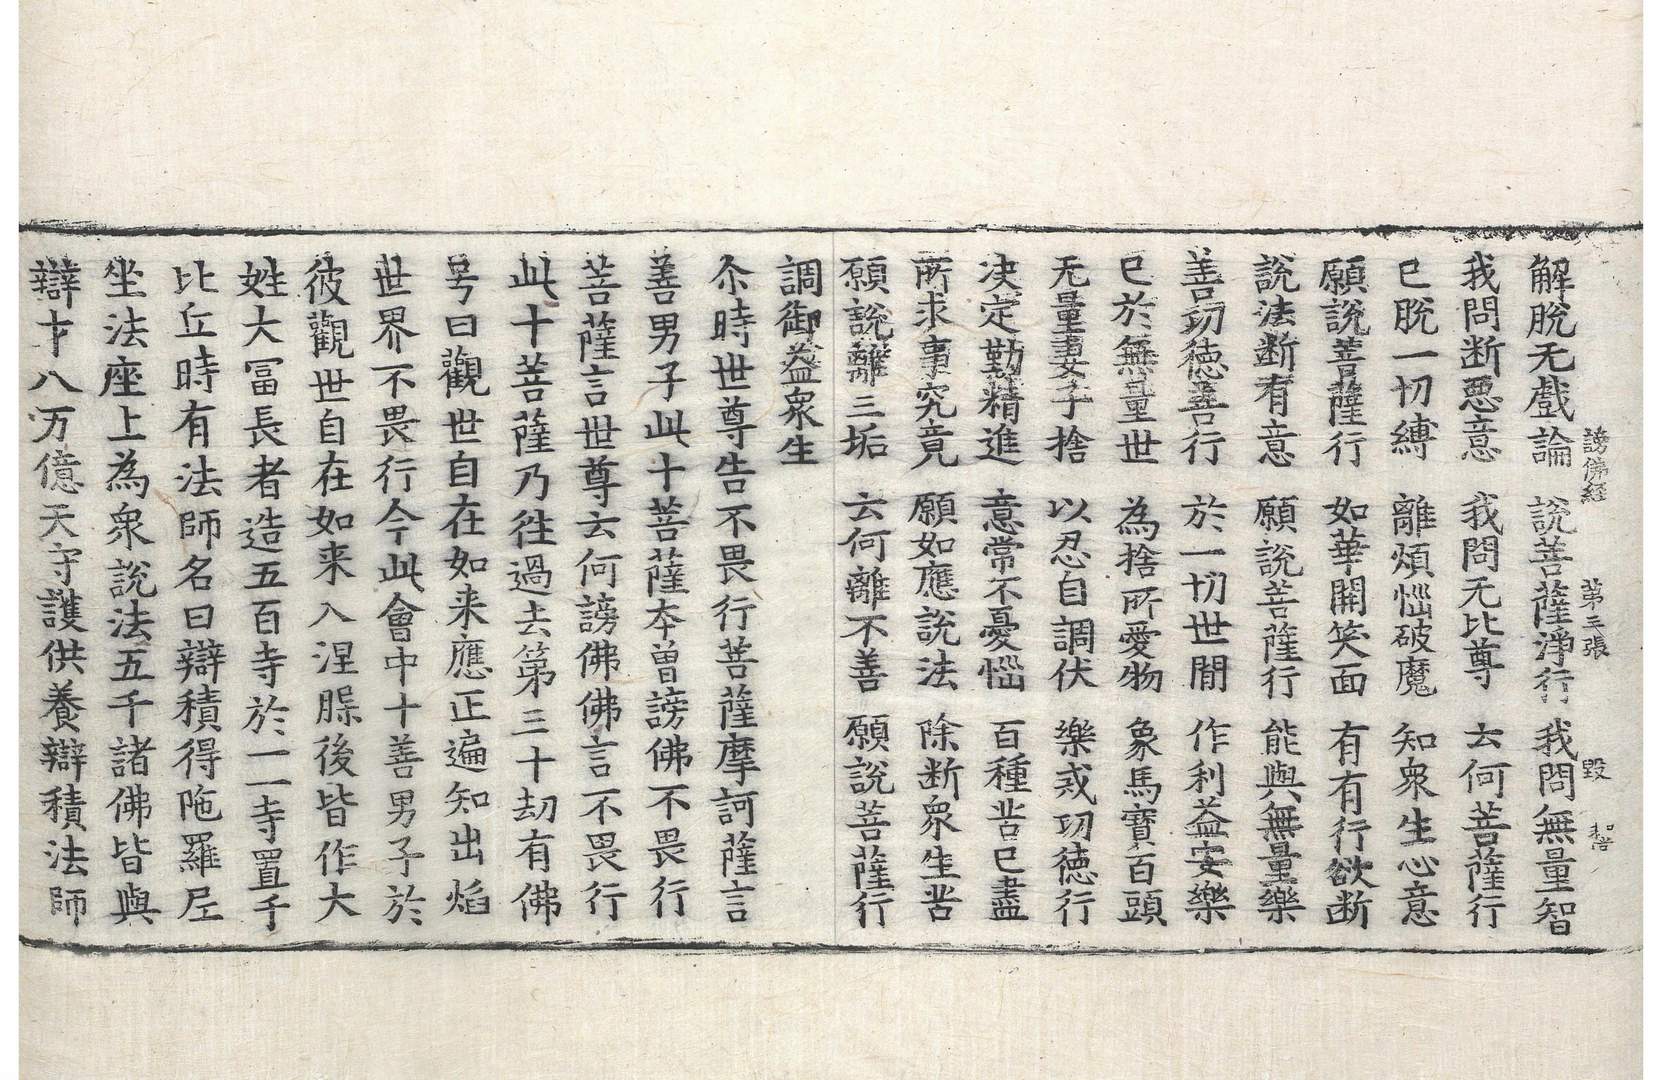 謗佛經 第三張 毀
解脫无戲論 說菩薩淨行 我問無量智
我問断惡意 我問无比尊 云何菩薩行
已脫一切縛 離煩惱破魔 知衆生心意
願說菩薩行 如華開笑面 有有行欲断
說法断有意 願說菩薩行 能與無量樂
善功徳善行 於一切世間 作利益安樂
已於無量世 為捨所愛物 象馬寶百頭
无量妻子捨 以忍自調伏 樂戒功徳行
决定勤精進 意常不憂惱 百種苦已盡
所求事究竟 願如應說法 除断衆生苦
願說離三垢 云何離不善 願說菩薩行
調御益衆生
尒時世尊告不畏行菩薩摩訶薩言
善男子此十菩薩本曾謗佛不畏行
菩薩言世尊云何謗佛佛言不畏行
此十菩薩乃往過去第三十劫有佛
号曰觀世自在如来應正遍知出焰
世界不畏行今此會中十善男子於
彼觀世自在如来入涅槃後皆作大
姓大冨長者造五百寺於一一寺置千
比丘時有法師名曰辯積得陁羅尼
坐法座上為衆說法五千諸佛皆與
辯才八万億天守護供養辯積法師